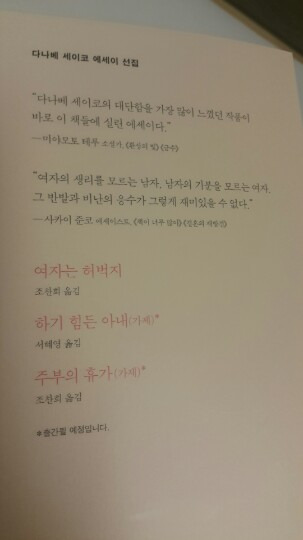 다나베 세이코 에세이 선집
"다나베 세이코의 대단함을 가장 많이 느꼈던 작품이
바로 이 책들에 실린 에세이다."
─미야모토 테루 소설가, 《환상의 빛》《금수》
"여자의 생리를 모르는 남자, 남자의 기분을 모르는 여자.
그 반발과 비난의 응수가 그렇게 재미있을 수 없다."
─사카이 준코 에세이스트, 《책이 너무 많아》
여자는 허벅지
조찬희 옮김
하기 힘든 아내(가제)*
서혜영 옮김
주부의 휴가(가제)*
조찬희 옮김
*출간될 예정입니다.